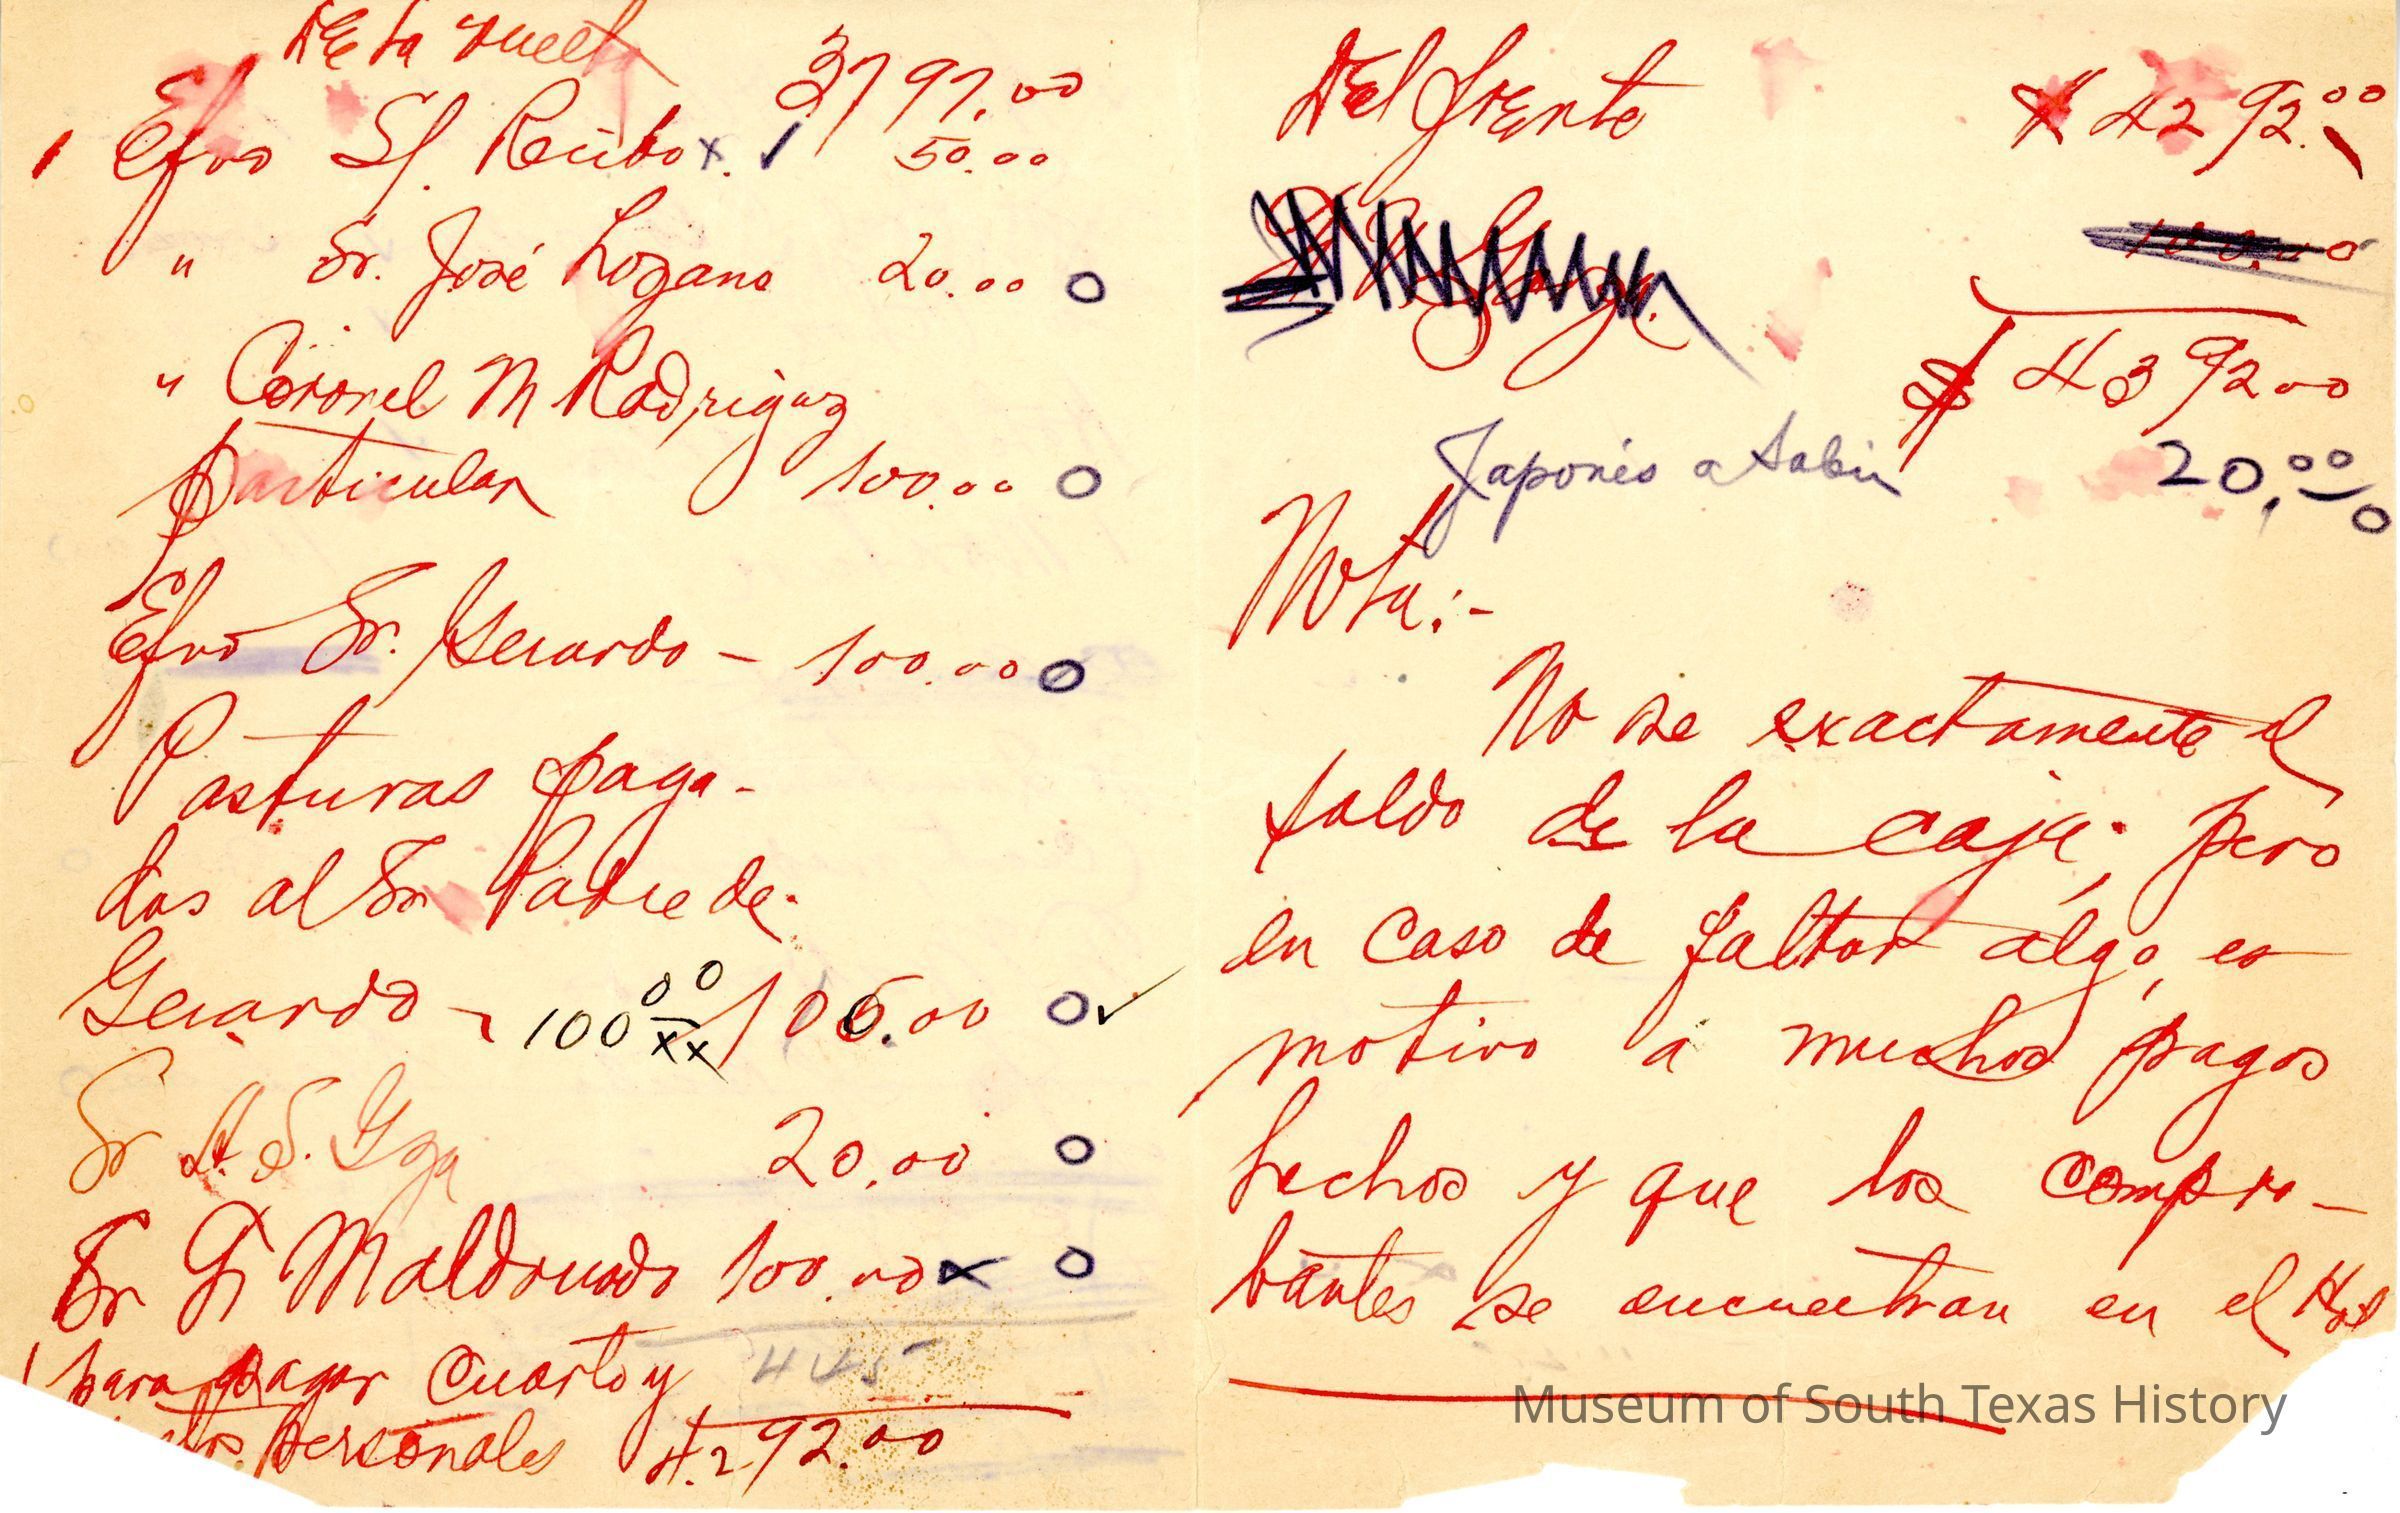 De la vuelta 3797.00
Efvo S/. Recibo x. ✓ 50.00
" Sr. José Lozano 20.00 o
" Coronel M Rodriguez
particular 100.00 o
Efvo Sr. Gerardo - 100.00 o
Pasturas paga-
das al Sr Padre de
Gerardo - 100 00/xx 105.00 o ✓
Sr A. S. Gza 20.00 o
Sr F. Maldonado 100.00 x o
para pagar cuarto y 445
personales 4.292.00
Del frente $ 4292.00
100.00
$ 4392.00
Japonés a Sabin 20.00 o
Nota:-
No se exactamente el
saldo de la caja; pero
en caso de faltar algo, es
motivo a muchos pagos
hechos y que los compro-
bantes se encuentran en el
Museum of South Texas History